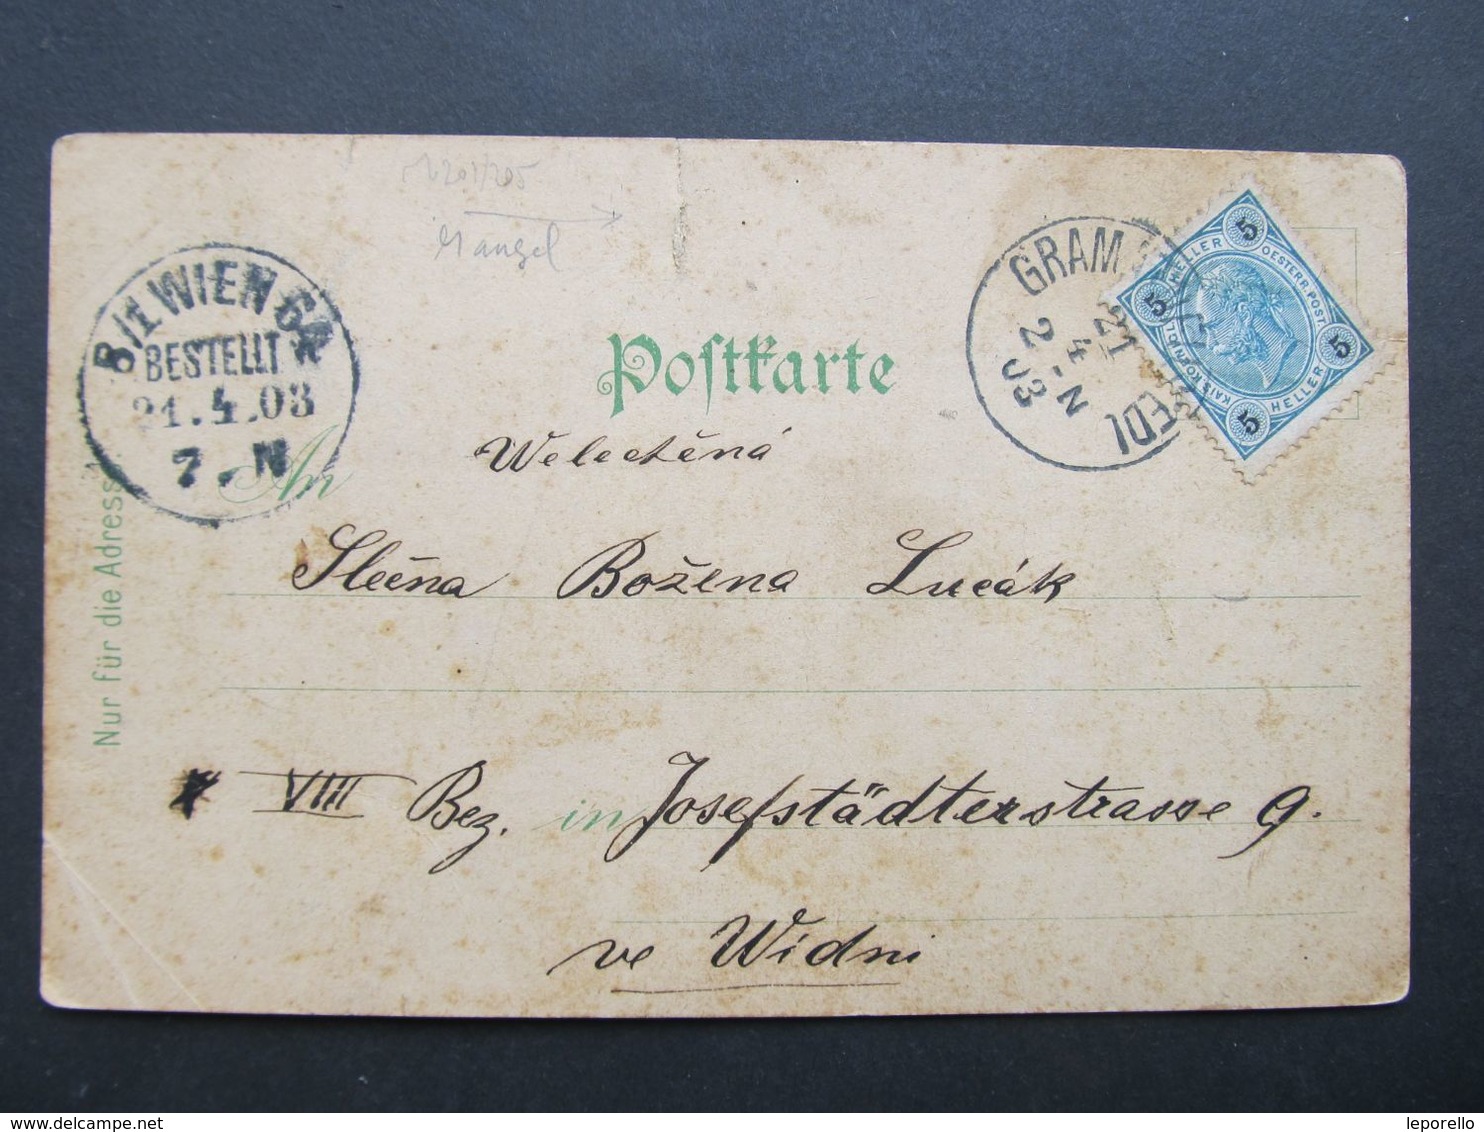 Mangel
B/1 WIEN 64
BESTELLT
21.4.03
7.-N
GRAM EDL
21
4
2-N
03
5 HELLER 5
OESTERR. POST.
5 HELLER 5
Postkarte
An
Nur für die Adresse.
Welectěná
Slečna Božena Lucák
VIII Bez. in Josefstädterstrasse 9.
ve Widni
www.delcampe.net
leporello